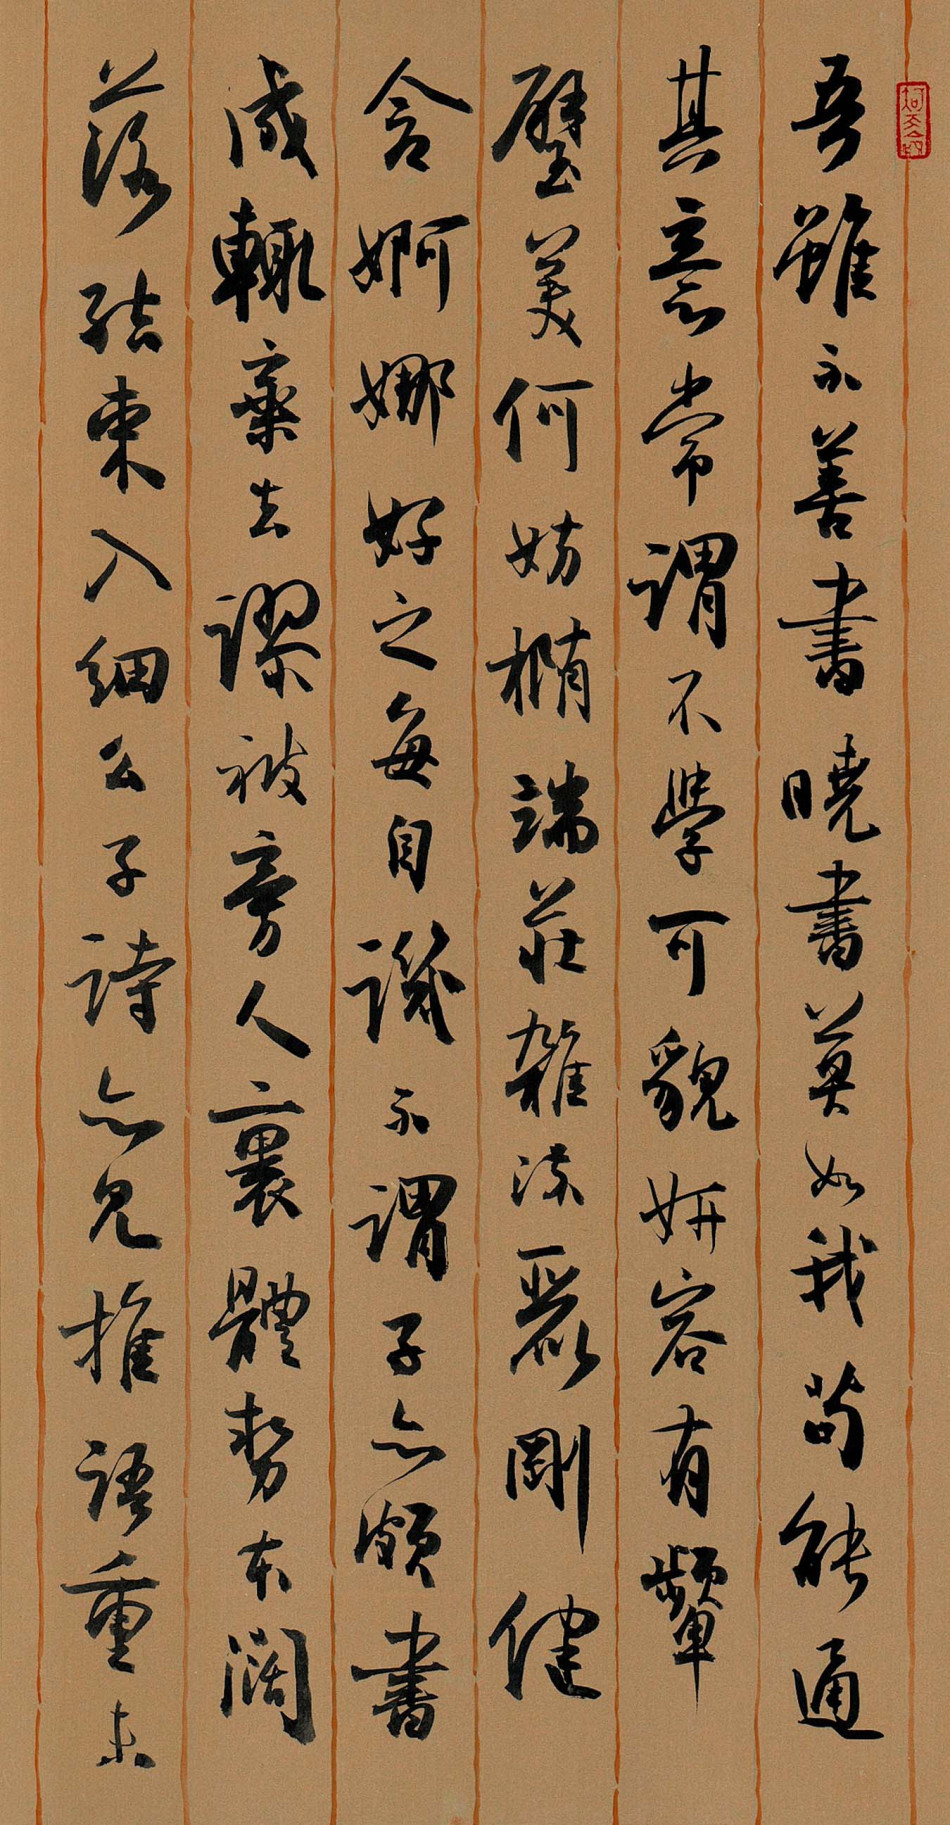 吾雖不善書曉書莫如我苟能通
其意常謂不學可貌妍容有顰
璧美何妨橢端莊雜流麗剛健
含婀娜好之每自譏不謂子亦頗書
成輒棄去謬被旁人裹體勢本闊
落結束入細麽子詩亦見推語重未